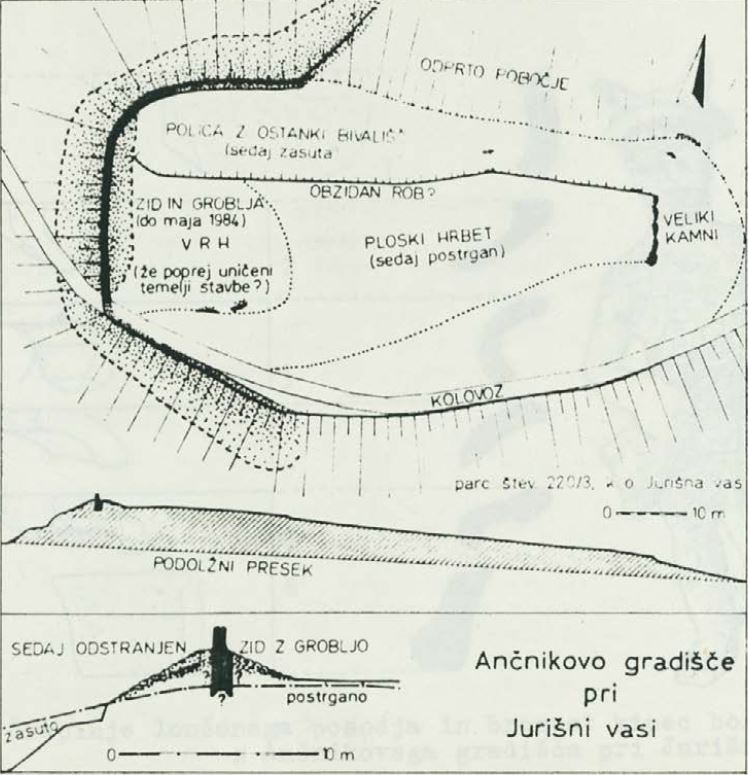 ODPRTO POBOČJE
POLICA Z OSTANKI BIVALIŠ
(sedaj zasuta)
OBZIDAN ROB?
ZID IN GROBLJA
(do maja 1984)
VRH
(že poprej uničeni
temelji stavbe?)
PLOSKI HRBET
(sedaj postrgan)
VELIKI
KAMNI
KOLOVOZ
parc štev. 220/3, k o Jurišna vas
0 10 m
PODOLŽNI PRESEK
SEDAJ ODSTRANJEN ZID Z GROBLJO
?
postrgano
zasuto
0 10 m
Ančnikovo gradišče
pri
Jurišni vasi